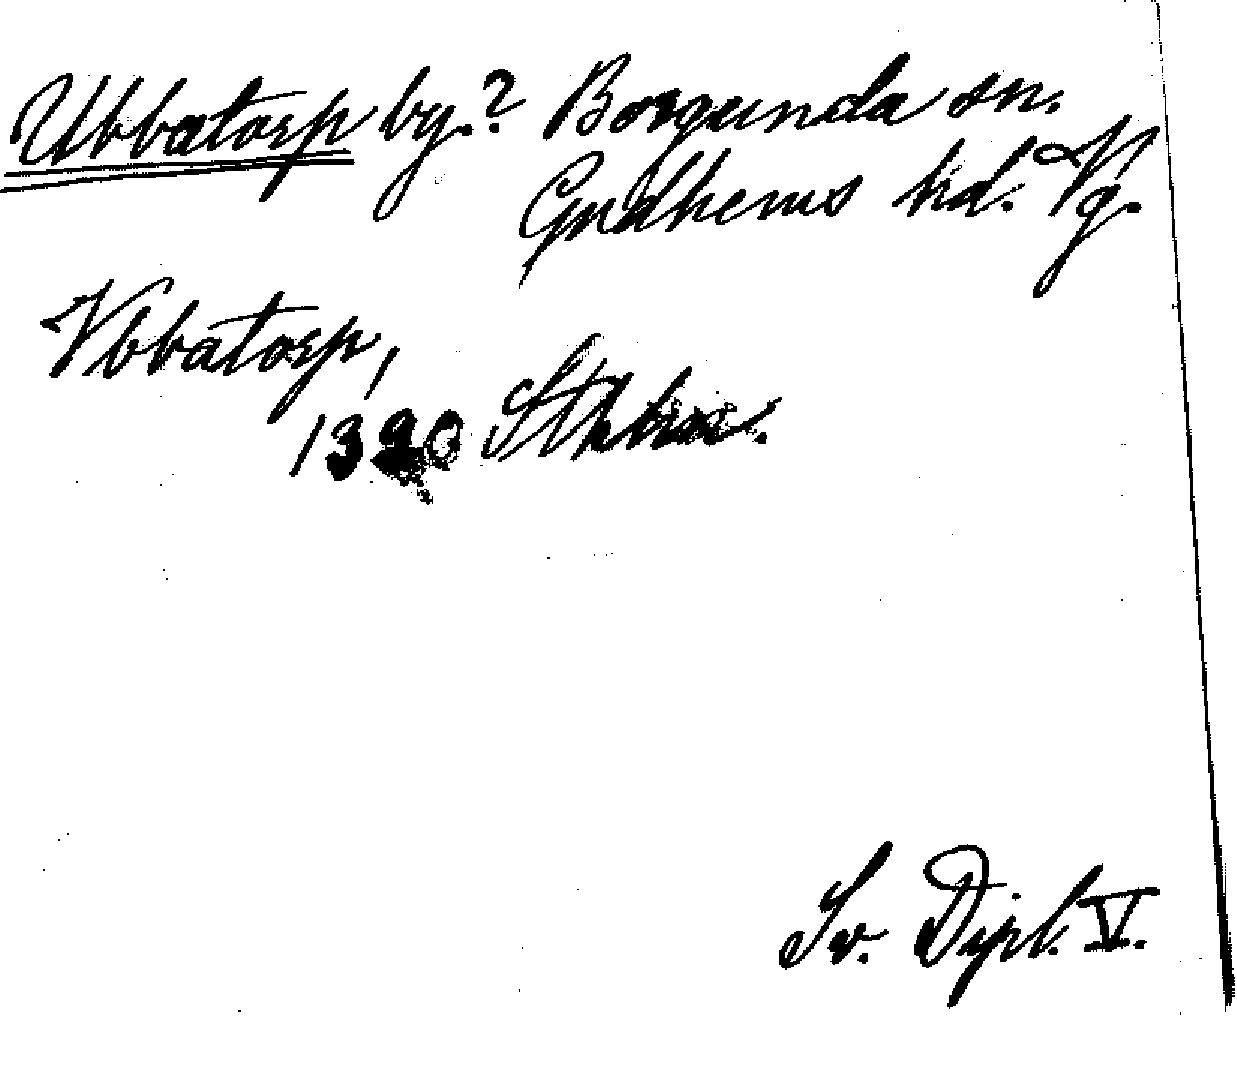 Ubbatorp by.? Borgunda sn.
Gudhems hd. Vg.
Vbbatorp,
1320 Sthlm.
Sv. Dipl. V.